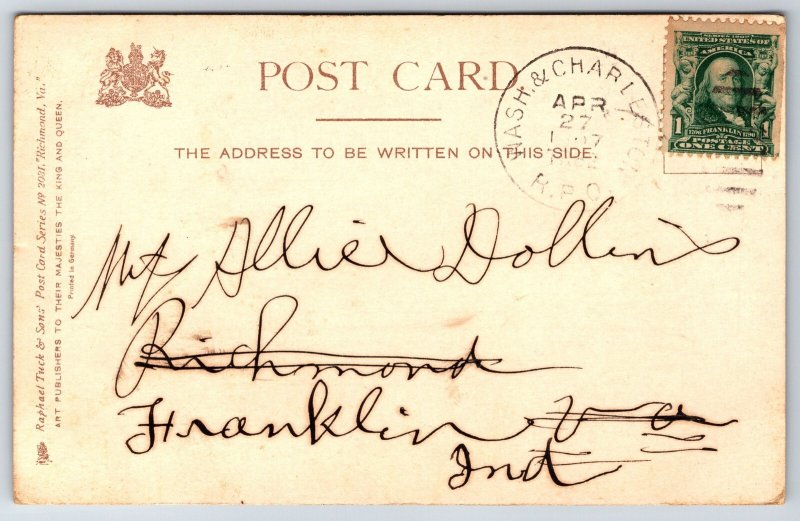 POST CARD
THE ADDRESS TO BE WRITTEN ON THIS SIDE.
WASH. & CHARLESTON
APR
27
R.P.O.
SERIES 1902
UNITED STATES OF
AMERICA
1
1706 FRANKLIN 1790
1
POSTAGE
ONE CENT
Raphael Tuck & Sons' Post Card Series No 2021, "Richmond, Va."
ART PUBLISHERS TO THEIR MAJESTIES THE KING AND QUEEN.
Printed in Germany.
Allie Dollins
Richmond
Franklin Va
Ind